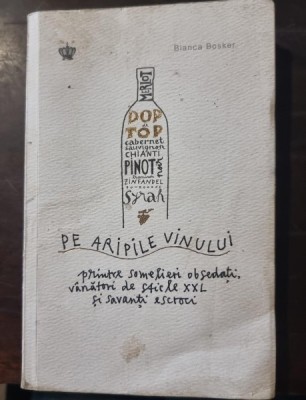 Bianca Bosker
MERLOT
DOP
TOP
cabernet
sauvignon
CHIANTI
PINOT
ZINFANDEL
Syrah
PE ARIPILE VINULUI
printre somelieri obsedați,
vânători de sticle XXL
și savanți escroci